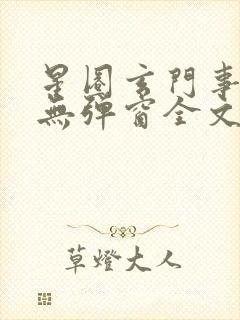 星圈玄門事
無彈窗全文
草燈大人